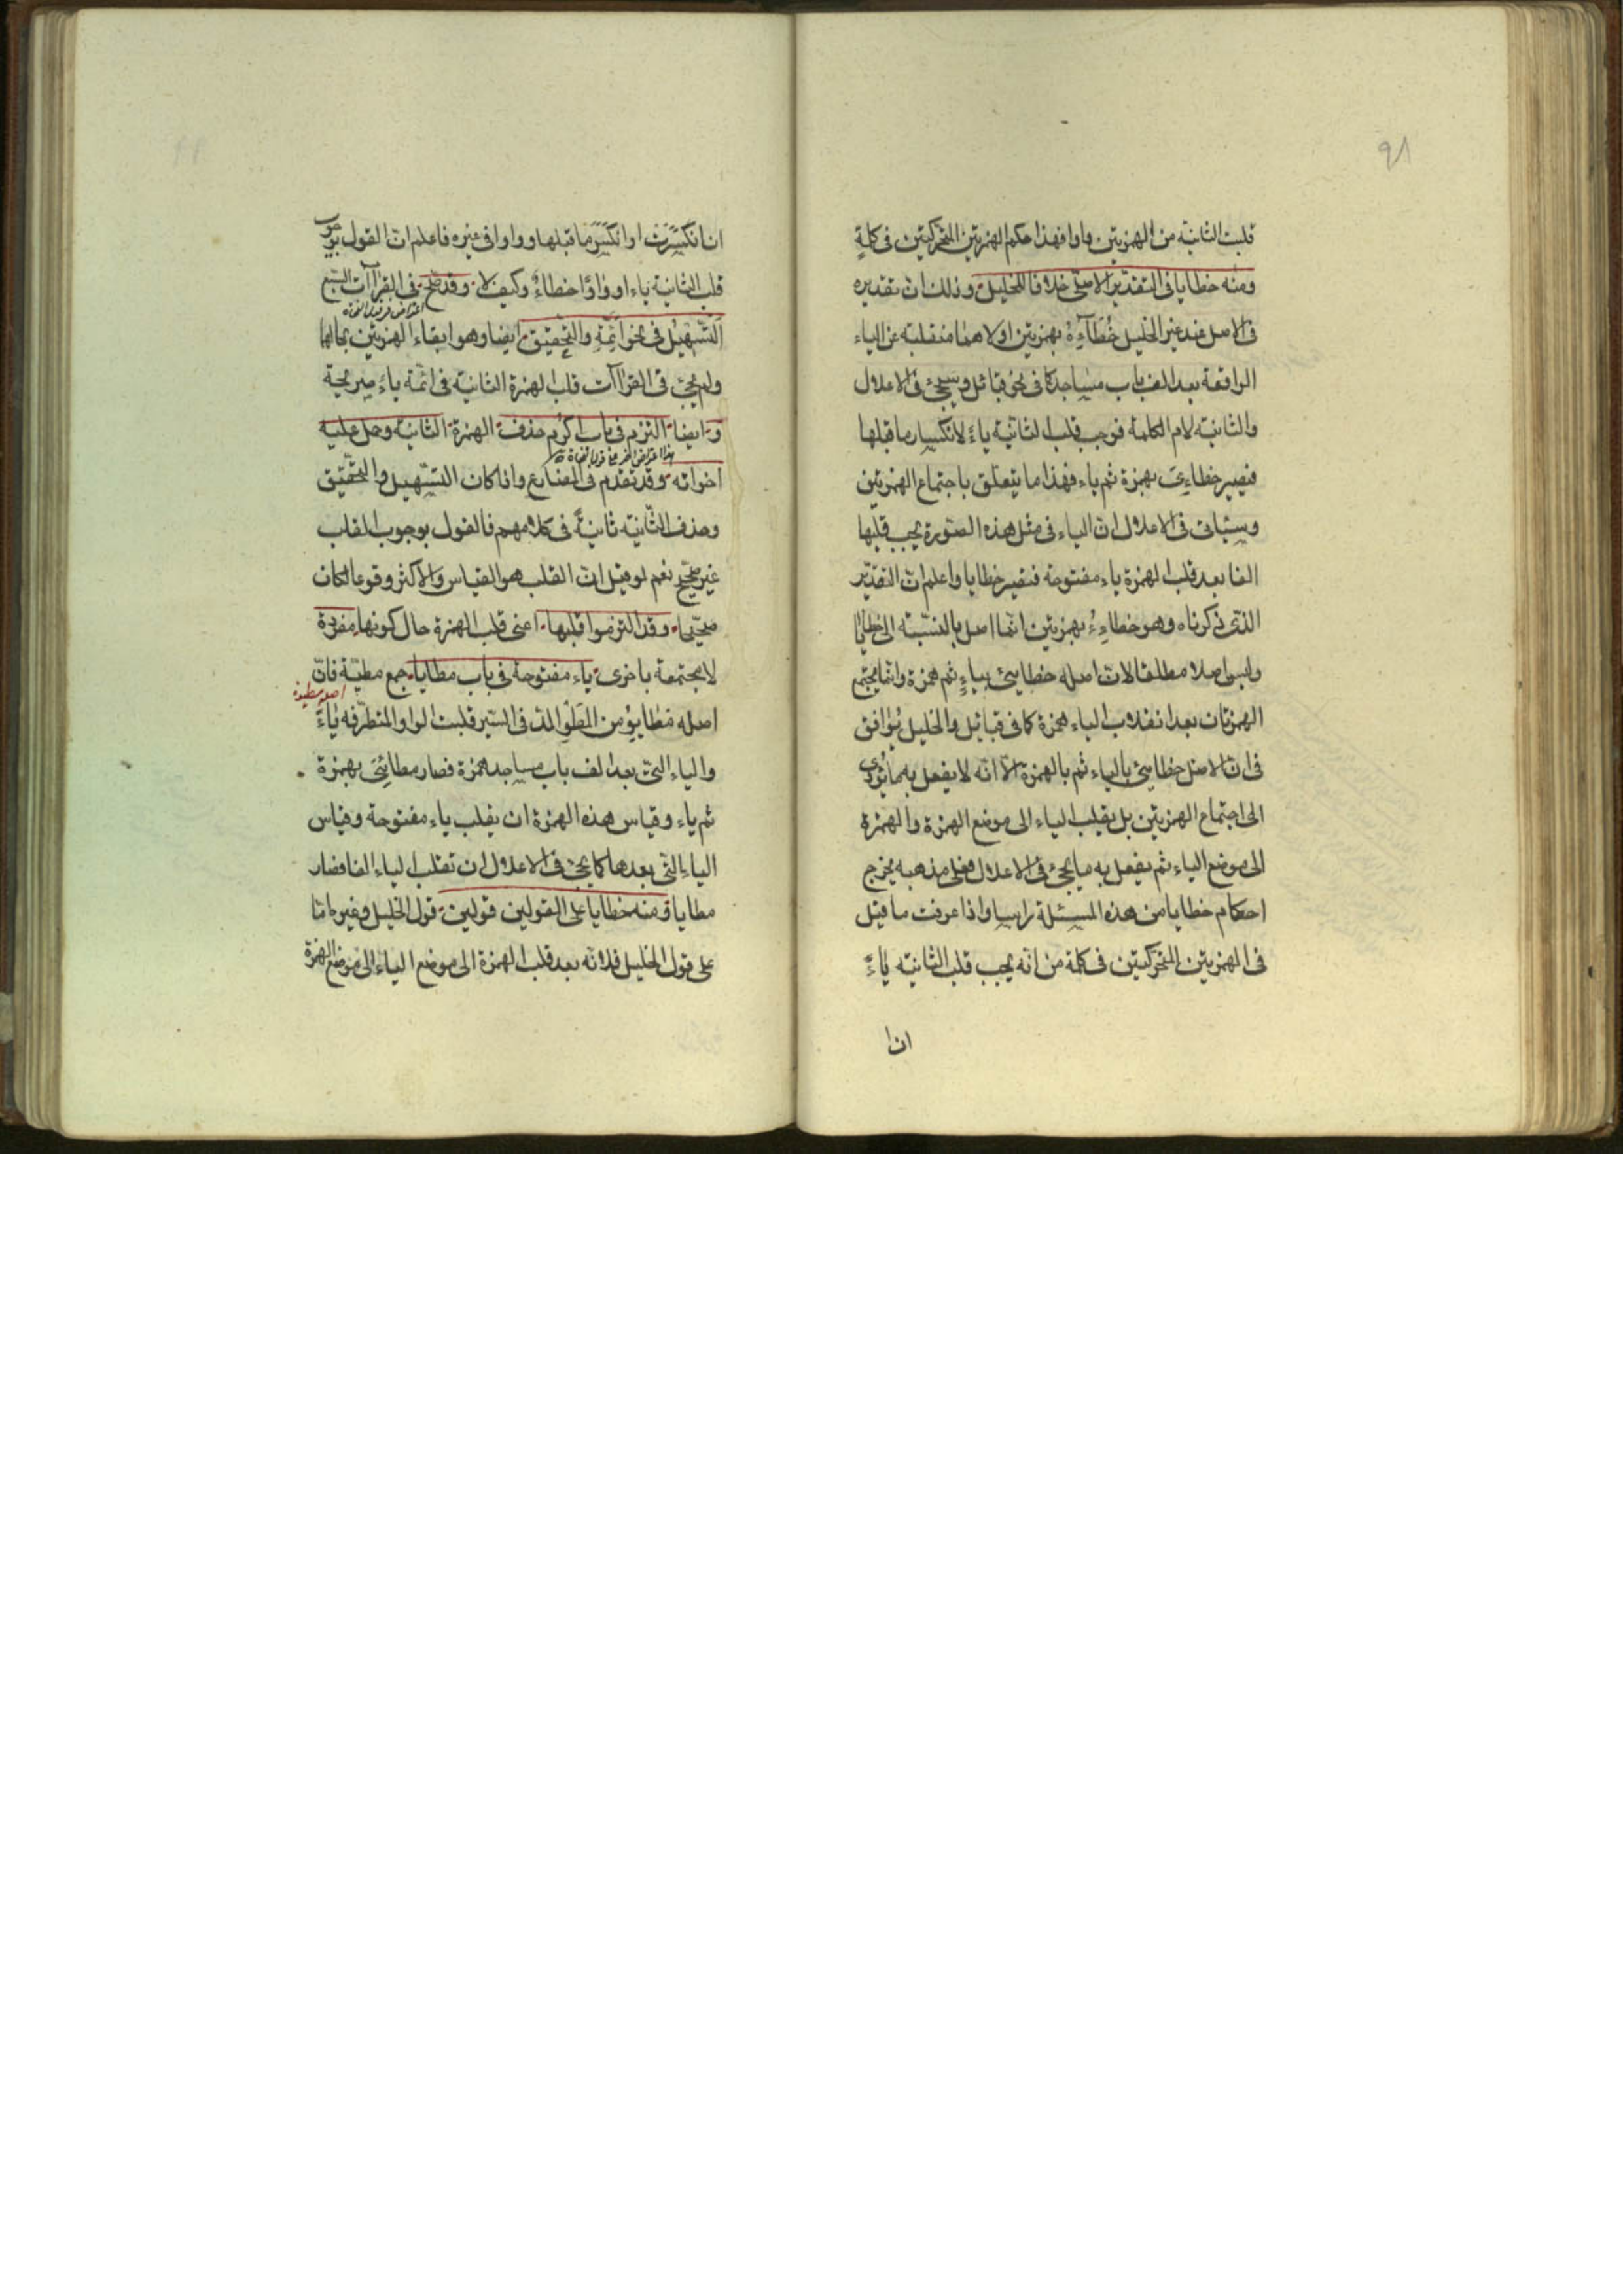 ٩٨
قلبت الثانية من الهمزتين واوا فهذا حكم الهمزتين المتحركتين فى كلمةٍ
ومنه خطايا فى التقدير الاصلى خلافا للخليل وذلك ان تقديره
فى الاصل عند غير الخليل خَطَاءِءُ بهمزتين اولاهما منقلبة عن الياء
الواقعة بعد الف باب مساجد كما فى نحو قبائل وسيجئ فى الاعلال
والثانية لام الكلمة فوجب قلب الثانية ياءً لانكسار ما قبلها
فيصير خطاءِىَ بهمزة ثم ياء فهذا ما يتعلق باجتماع الهمزتين
وسيأتى فى الاعلال انّ الياء فى مثل هذه الصّورة يجب قلبها
الفا بعد قلب الهمزة ياء مفتوحة فيصير خطايا واعلم انّ التقدير
الذى ذكرناه وهو خطاءِءُ بهمزتين انّما اصل بالنسبة الى خطايا
وليس اصلا مطلقا لانّ اصله خطايئ بياءٍ ثم همزة وانّما يجتمع
الهمزتان بعد انقلاب الياء همزة كما فى قبائل والخليل يُوافق
فى انّ الاصل خطايئ بالياء ثم بالهمزة الّا انّه لا يفعل به ما يؤدى
الى اجتماع الهمزتين بل يقلب الياء الى موضع الهمزة والهمزة
الى موضع الياء ثم يفعل به ما يجئ فى الاعلال فعلى مذهبه يخرج
احكام خطايا من هذه المسئلة راسا واذا عرفت ما قيل
فى الهمزتين المتحركتين فى كلمة من انّه يجب قلب الثانية ياءً
ان ا
ان انكسَرَت او انكَسَرَ ما قبلها وواوا فى غيره فاعلم انّ القول بوجوب
قلب الثانية ياء او واوًا خطاءٌ وكيف لا وقد صحّ فى القراآت السّبع
اعتراض من قول النحاة
التّسهيل فى نحو ائمّة والتّحقيق ايضا وهو ابقاء الهمزتين بحالها
ولم يجئ فى القراآت قلب الهمزة الثانية فى ائمّة ياءً صريحة
وايضا التزم فى باب اكرم حذف الهمزة الثانية وحمل عليه
هذا اعتراض اخر من قول النحاة
اخواته وقد تقدم فى المضارع واذا كان التّسهيل والتّحقيق
وحذف الثّانية ثابتةً فى كلامهم فالقول بوجوب القلب
غير صحيح نعم لو قيل انّ القلب هو القياس والاكثر وقوعا لكان
صحيحا وقد التزموا قلبها اعنى قلب الهمزة حال كونها مفردة
لا مجتمعة باخرى ياء مفتوحة فى باب مطايا جمع مطيّة فانّ
اصله مطيوة
اصله مَطايِوُ من المَطْوِ المدّ فى السّير قلبت الواو المتطرّفة ياءً
والياء التى بعد الف باب مساجد همزة فصار مطائِىَ بهمزة
ثم ياء وقياس هذه الهمزة ان يقلب ياء مفتوحة وقياس
الياء التى بعدها كما يجئ فى الاعلال ان تقلب الياء الفا فصار
مطايا ومنه خطايا على القولين قولين قول الخليل وغيره امّا
على قول الخليل فلانّه بعد قلب الهمزة الى موضع الياء والياء الى موضع الهمزة